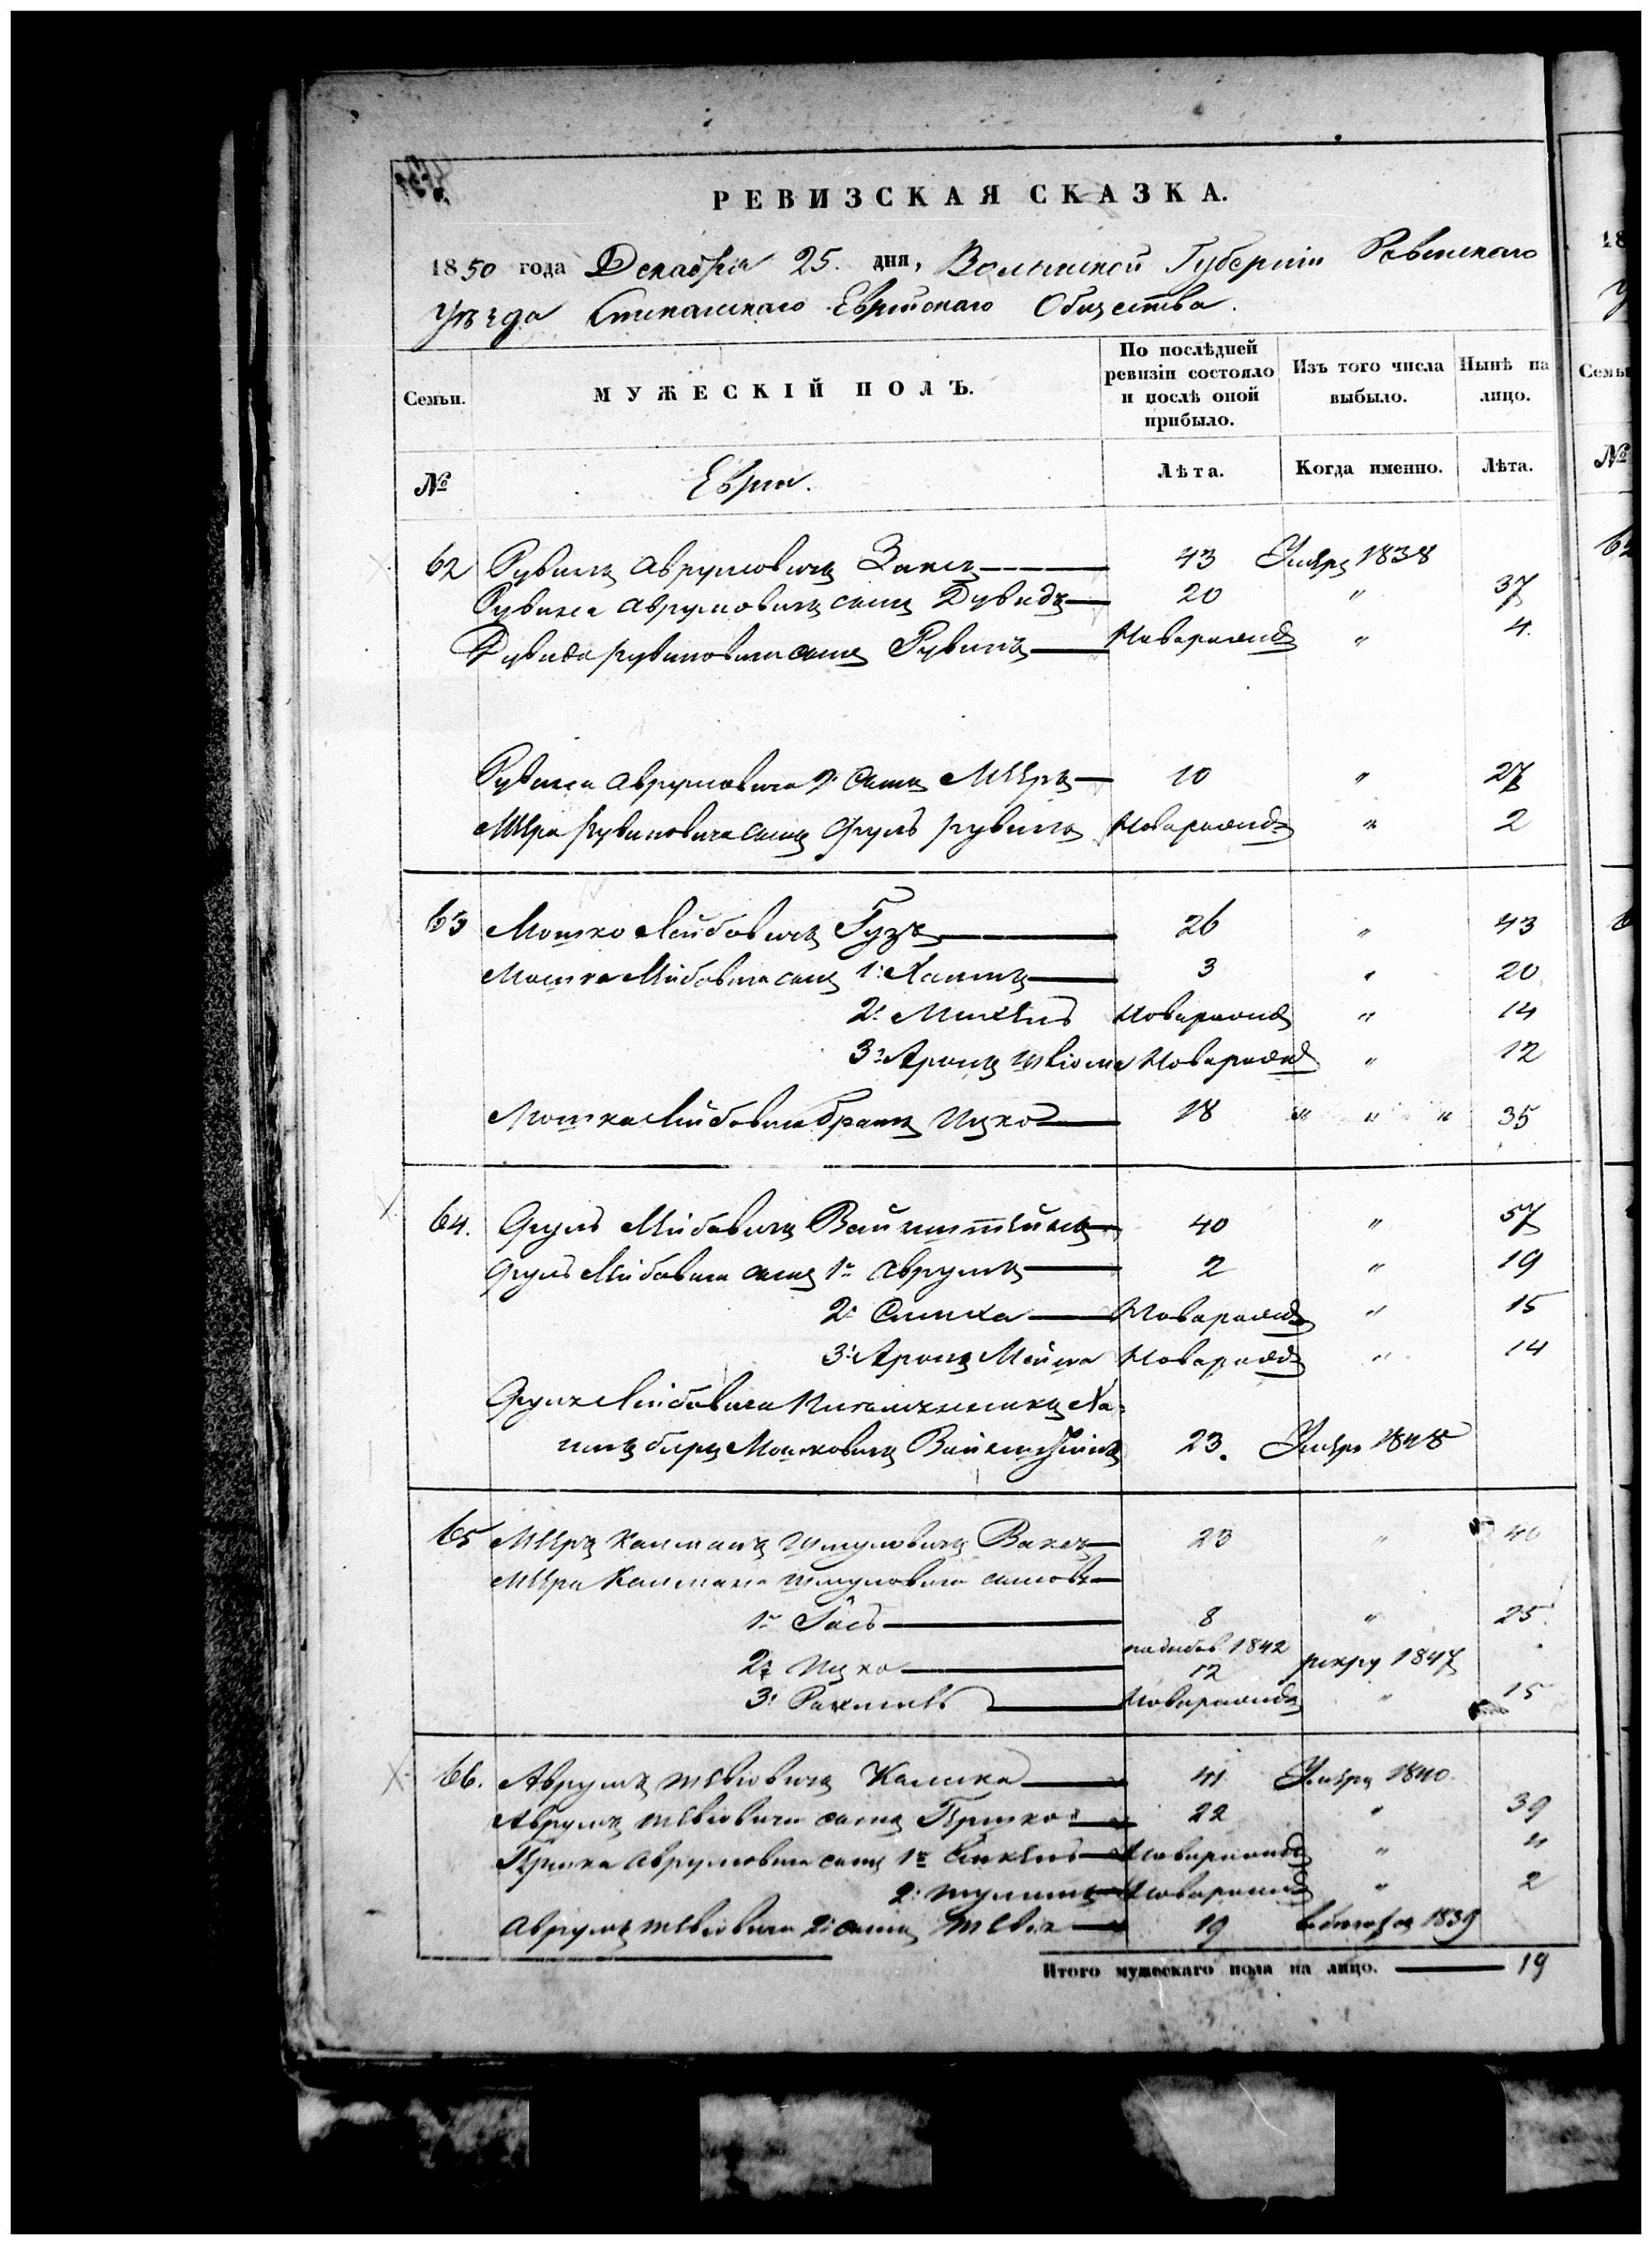 РЕВИЗСКАЯ СКАЗКА.
1850 года Декабря 25. дня, Волынской Губернiи Ровенскаго
Уѣзда Степанскаго Еврейскаго Общества.
Семьи. МУЖЕСКIЙ ПОЛЪ. По послѣдней ревизiи состояло и послѣ оной прибыло. Изъ того числа выбыло. Нынѣ на лицо.
№ Евреи. Лѣта. Когда именно. Лѣта.
62 Рувинъ Аврумовичъ Заксъ 43 Умеръ 1838
Рувина Аврумовича сынъ Дувидъ 20 " 37
Дувида Рувиновича сынъ Рувинъ Новорожд " 4.
Рувина Аврумовича 2й сынъ Мееръ 10 " 27
Меера Рувиновича сынъ Сруль Рувинъ Новорожд " 2
63 Мошко Лейбовичъ Гузъ 26 " 43
Мошка Лейбовича сынъ 1й Хаимъ 3 " 20
2й Михель Новорожд " 14
3й Аронъ Новорожд " 12
Мошка Лейбовича братъ Ицко 18 " " " 35
64. Сруль Лейбовичъ Вайнштейнъ 40 " 57
Сруль Лейбовича сынъ 1й Аврумъ 2 " 19
2й Симха Новорожд " 15
3й Аронъ Мойша Новорожд " 14
Сруля Лейбовича Племянникъ Ха-
имъ Беръ Мошковичъ Вайнштейнъ 23. Умеръ 1848
65 Мееръ Калманъ Шмуловичъ Ваксъ 23 " 40
Меера Калмана Шмуловича сыновья
1й 8 " 25
1842
2й Ицко 12 рекру 1847
3й Рахмиль Новорожд " 15
66. Аврумъ Тевiовичъ Калика 41 Умеръ 1840.
Аврумъ Тевiовича сынъ Гершко 22 " 39
Гершка Аврумовича сынъ 1й Новорожд "
2й Новорожд " 2
Аврумъ Тевiовича 2й сынъ Тевiя 19 1839
Итого мужескаго пола на лицо. 19